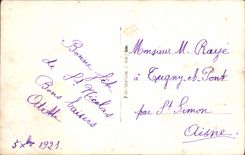 Bonne fête
de St Nicolas
Bons baisers
Odette
5 Xbre 1921
Monsieur M. Rayé
à Tugny et Pont
par St Simon
Aisne